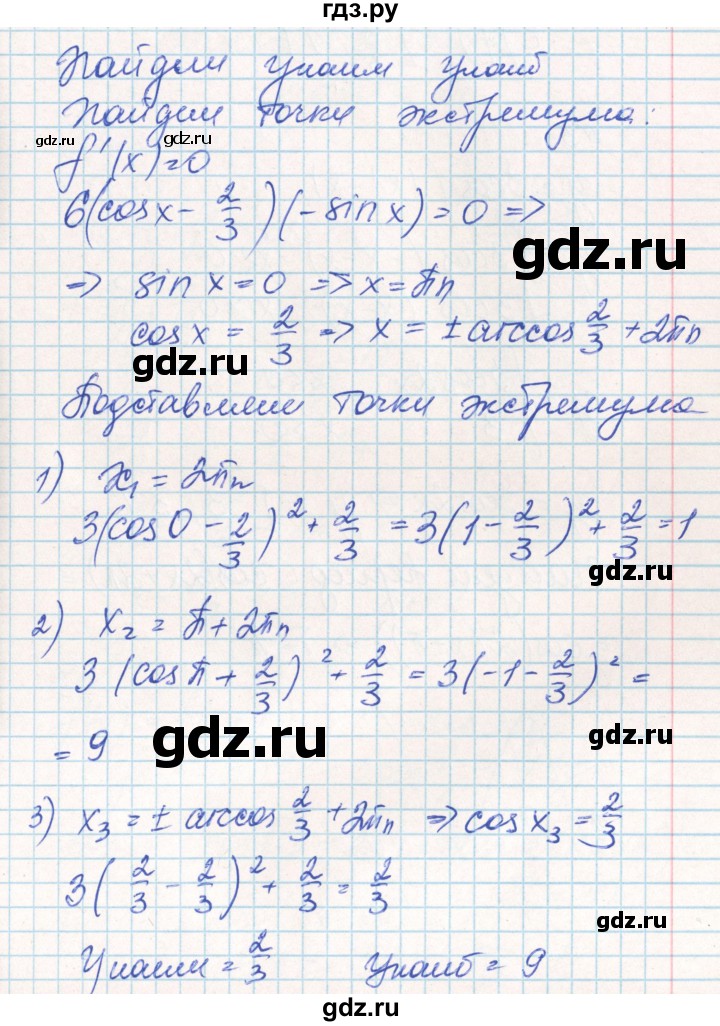 гдз.ру
Найдем yнаим yнаиб
Найдем точки экстремума:
gdz.ru gdz.ru gdz.ru
f'(x)=0
6(cosx - 2/3)(-sinx) = 0 =>
gdz.ru
=> sinx = 0 => x = πn
cosx = 2/3 => x = ± arccos 2/3 + 2πn
gdz.ru
Подставляем точки экстремума
1) x₁ = 2πn
3(cos0 - 2/3)² + 2/3 = 3(1 - 2/3)² + 2/3 = 1
gdz.ru
2) x₂ = π + 2πn
3(cosπ + 2/3)² + 2/3 = 3(-1 - 2/3)² =
= 9
gdz.ru gdz.ru
3) x₃ = ± arccos 2/3 + 2πn => cosx₃ = 2/3
3(2/3 - 2/3)² + 2/3 = 2/3
gdz.ru
Унаим = 2/3 Унаиб = 9
gdz.ru